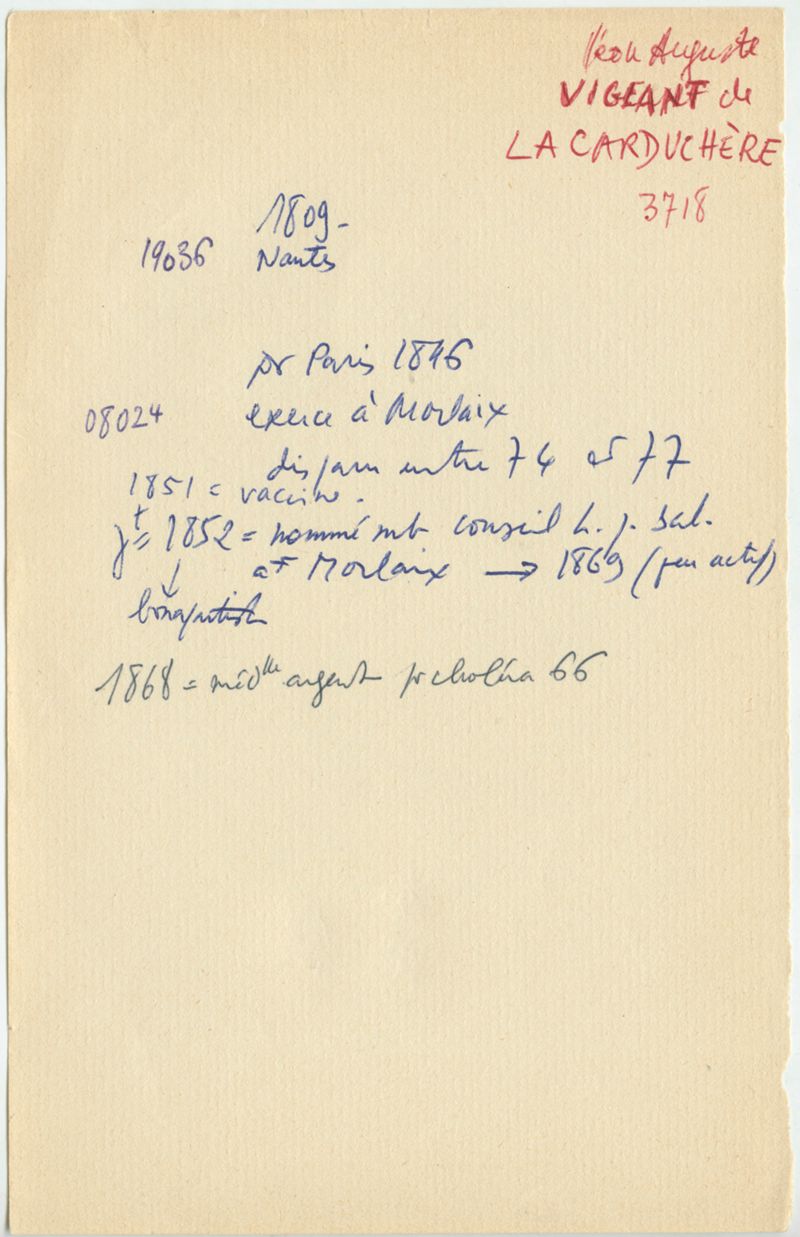 Léon Auguste
VIGEANT de
LA CARDUCHÈRE
3718
1809-
19036 Nantes
pr Paris 1846
08024 exerce à Morlaix
disparu entre 74 et 77
1851 = vaccine.
1852 = nommé mb conseil h. p. sal.
at Morlaix → 1869 (peu actif)
↓
bonapartiste
1868 = méd^lle argent pr choléra 66